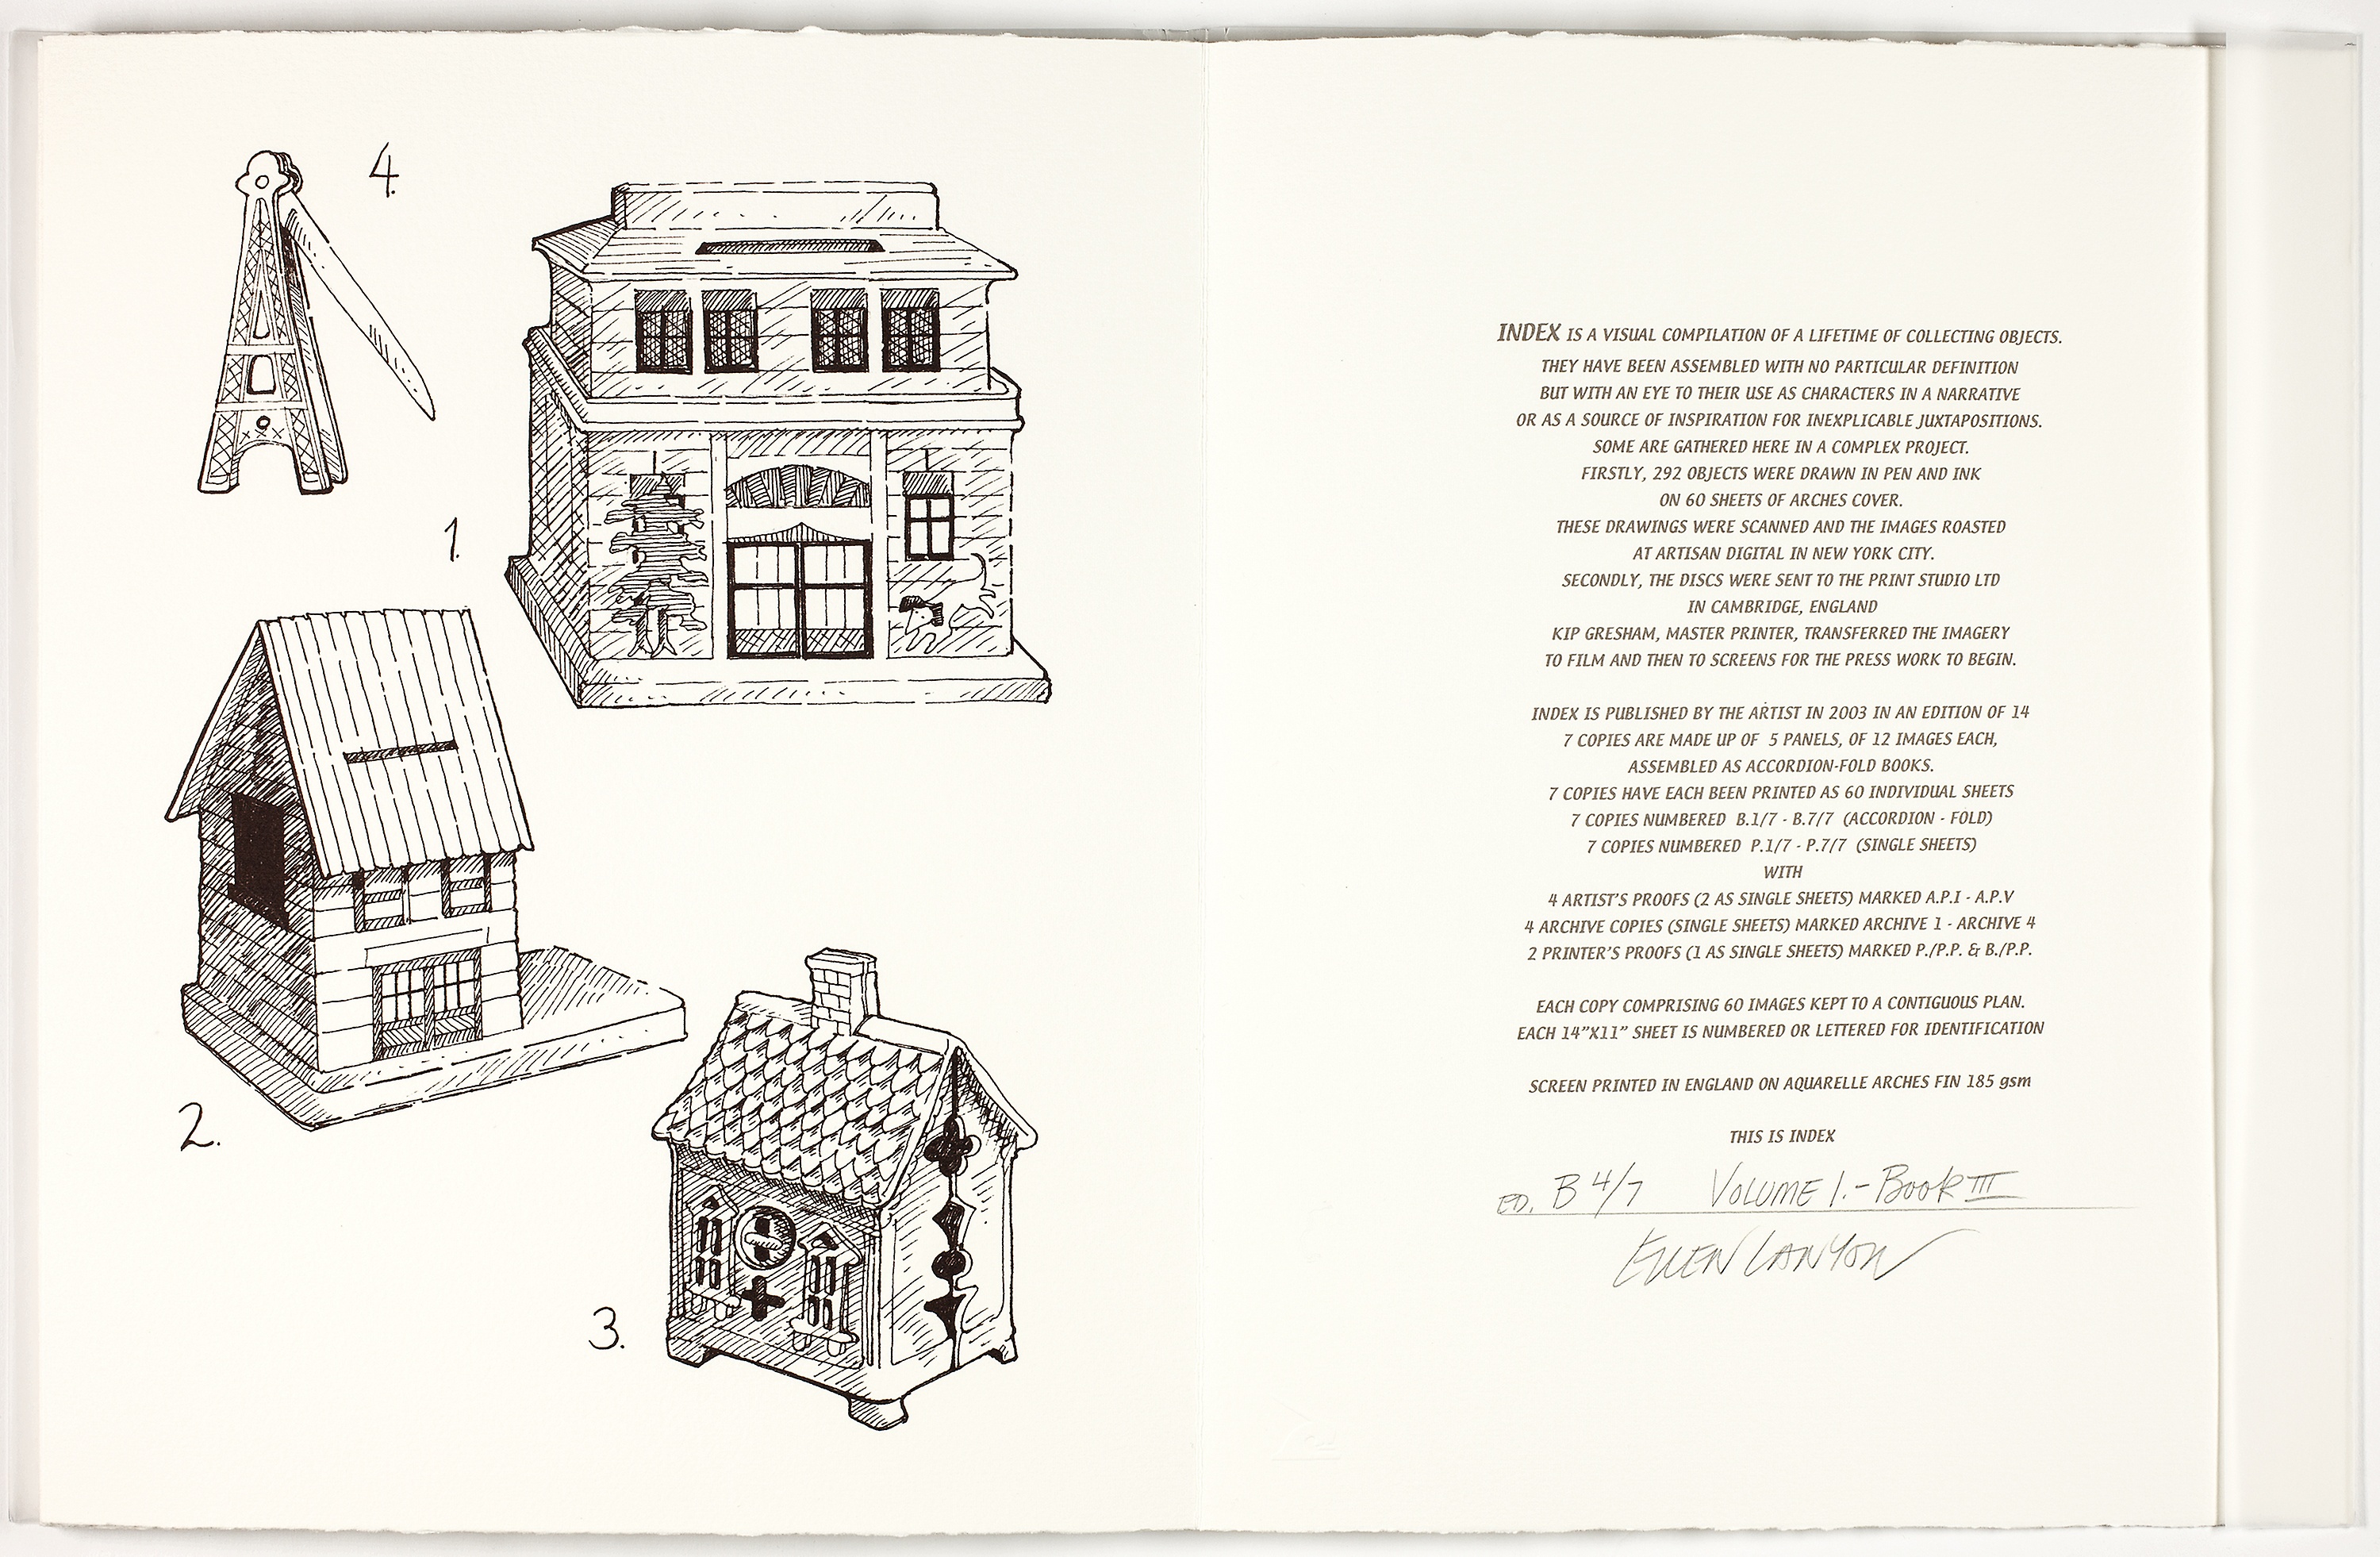 4.
1.
2.
3.
INDEX IS A VISUAL COMPILATION OF A LIFETIME OF COLLECTING OBJECTS.
THEY HAVE BEEN ASSEMBLED WITH NO PARTICULAR DEFINITION
BUT WITH AN EYE TO THEIR USE AS CHARACTERS IN A NARRATIVE
OR AS A SOURCE OF INSPIRATION FOR INEXPLICABLE JUXTAPOSITIONS.
SOME ARE GATHERED HERE IN A COMPLEX PROJECT.
FIRSTLY, 292 OBJECTS WERE DRAWN IN PEN AND INK
ON 60 SHEETS OF ARCHES COVER.
THESE DRAWINGS WERE SCANNED AND THE IMAGES ROASTED
AT ARTISAN DIGITAL IN NEW YORK CITY.
SECONDLY, THE DISCS WERE SENT TO THE PRINT STUDIO LTD
IN CAMBRIDGE, ENGLAND
KIP GRESHAM, MASTER PRINTER, TRANSFERRED THE IMAGERY
TO FILM AND THEN TO SCREENS FOR THE PRESS WORK TO BEGIN.
INDEX IS PUBLISHED BY THE ARTIST IN 2003 IN AN EDITION OF 14
7 COPIES ARE MADE UP OF 5 PANELS, OF 12 IMAGES EACH,
ASSEMBLED AS ACCORDION-FOLD BOOKS.
7 COPIES HAVE EACH BEEN PRINTED AS 60 INDIVIDUAL SHEETS
7 COPIES NUMBERED B.1/7 - B.7/7 (ACCORDION - FOLD)
7 COPIES NUMBERED P.1/7 - P.7/7 (SINGLE SHEETS)
WITH
4 ARTIST'S PROOFS (2 AS SINGLE SHEETS) MARKED A.P.I - A.P.V
4 ARCHIVE COPIES (SINGLE SHEETS) MARKED ARCHIVE 1 - ARCHIVE 4
2 PRINTER'S PROOFS (1 AS SINGLE SHEETS) MARKED P./P.P. & B./P.P.
EACH COPY COMPRISING 60 IMAGES KEPT TO A CONTIGUOUS PLAN.
EACH 14"X11" SHEET IS NUMBERED OR LETTERED FOR IDENTIFICATION
SCREEN PRINTED IN ENGLAND ON AQUARELLE ARCHES FIN 185 gsm
THIS IS INDEX
ED. B 4/7 VOLUME 1.- BOOK III
ELLEN LANYON